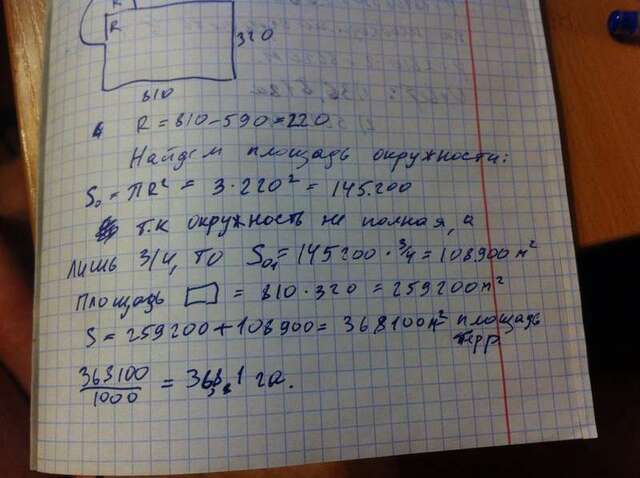 R
R
320
810
R = 810 - 590 = 220
Найдем площадь окружности:
S₀ = πR² = 3·220² = 145.200
т.к окружность не полная, а
лишь 3/4, то S₀₁ = 145200 · 3/4 = 108900 м²
площадь ▭ = 810·320 = 259200 м²
S = 259200 + 108900 = 368100 м² площадь
терр
368100/1000 = 368,1 га.